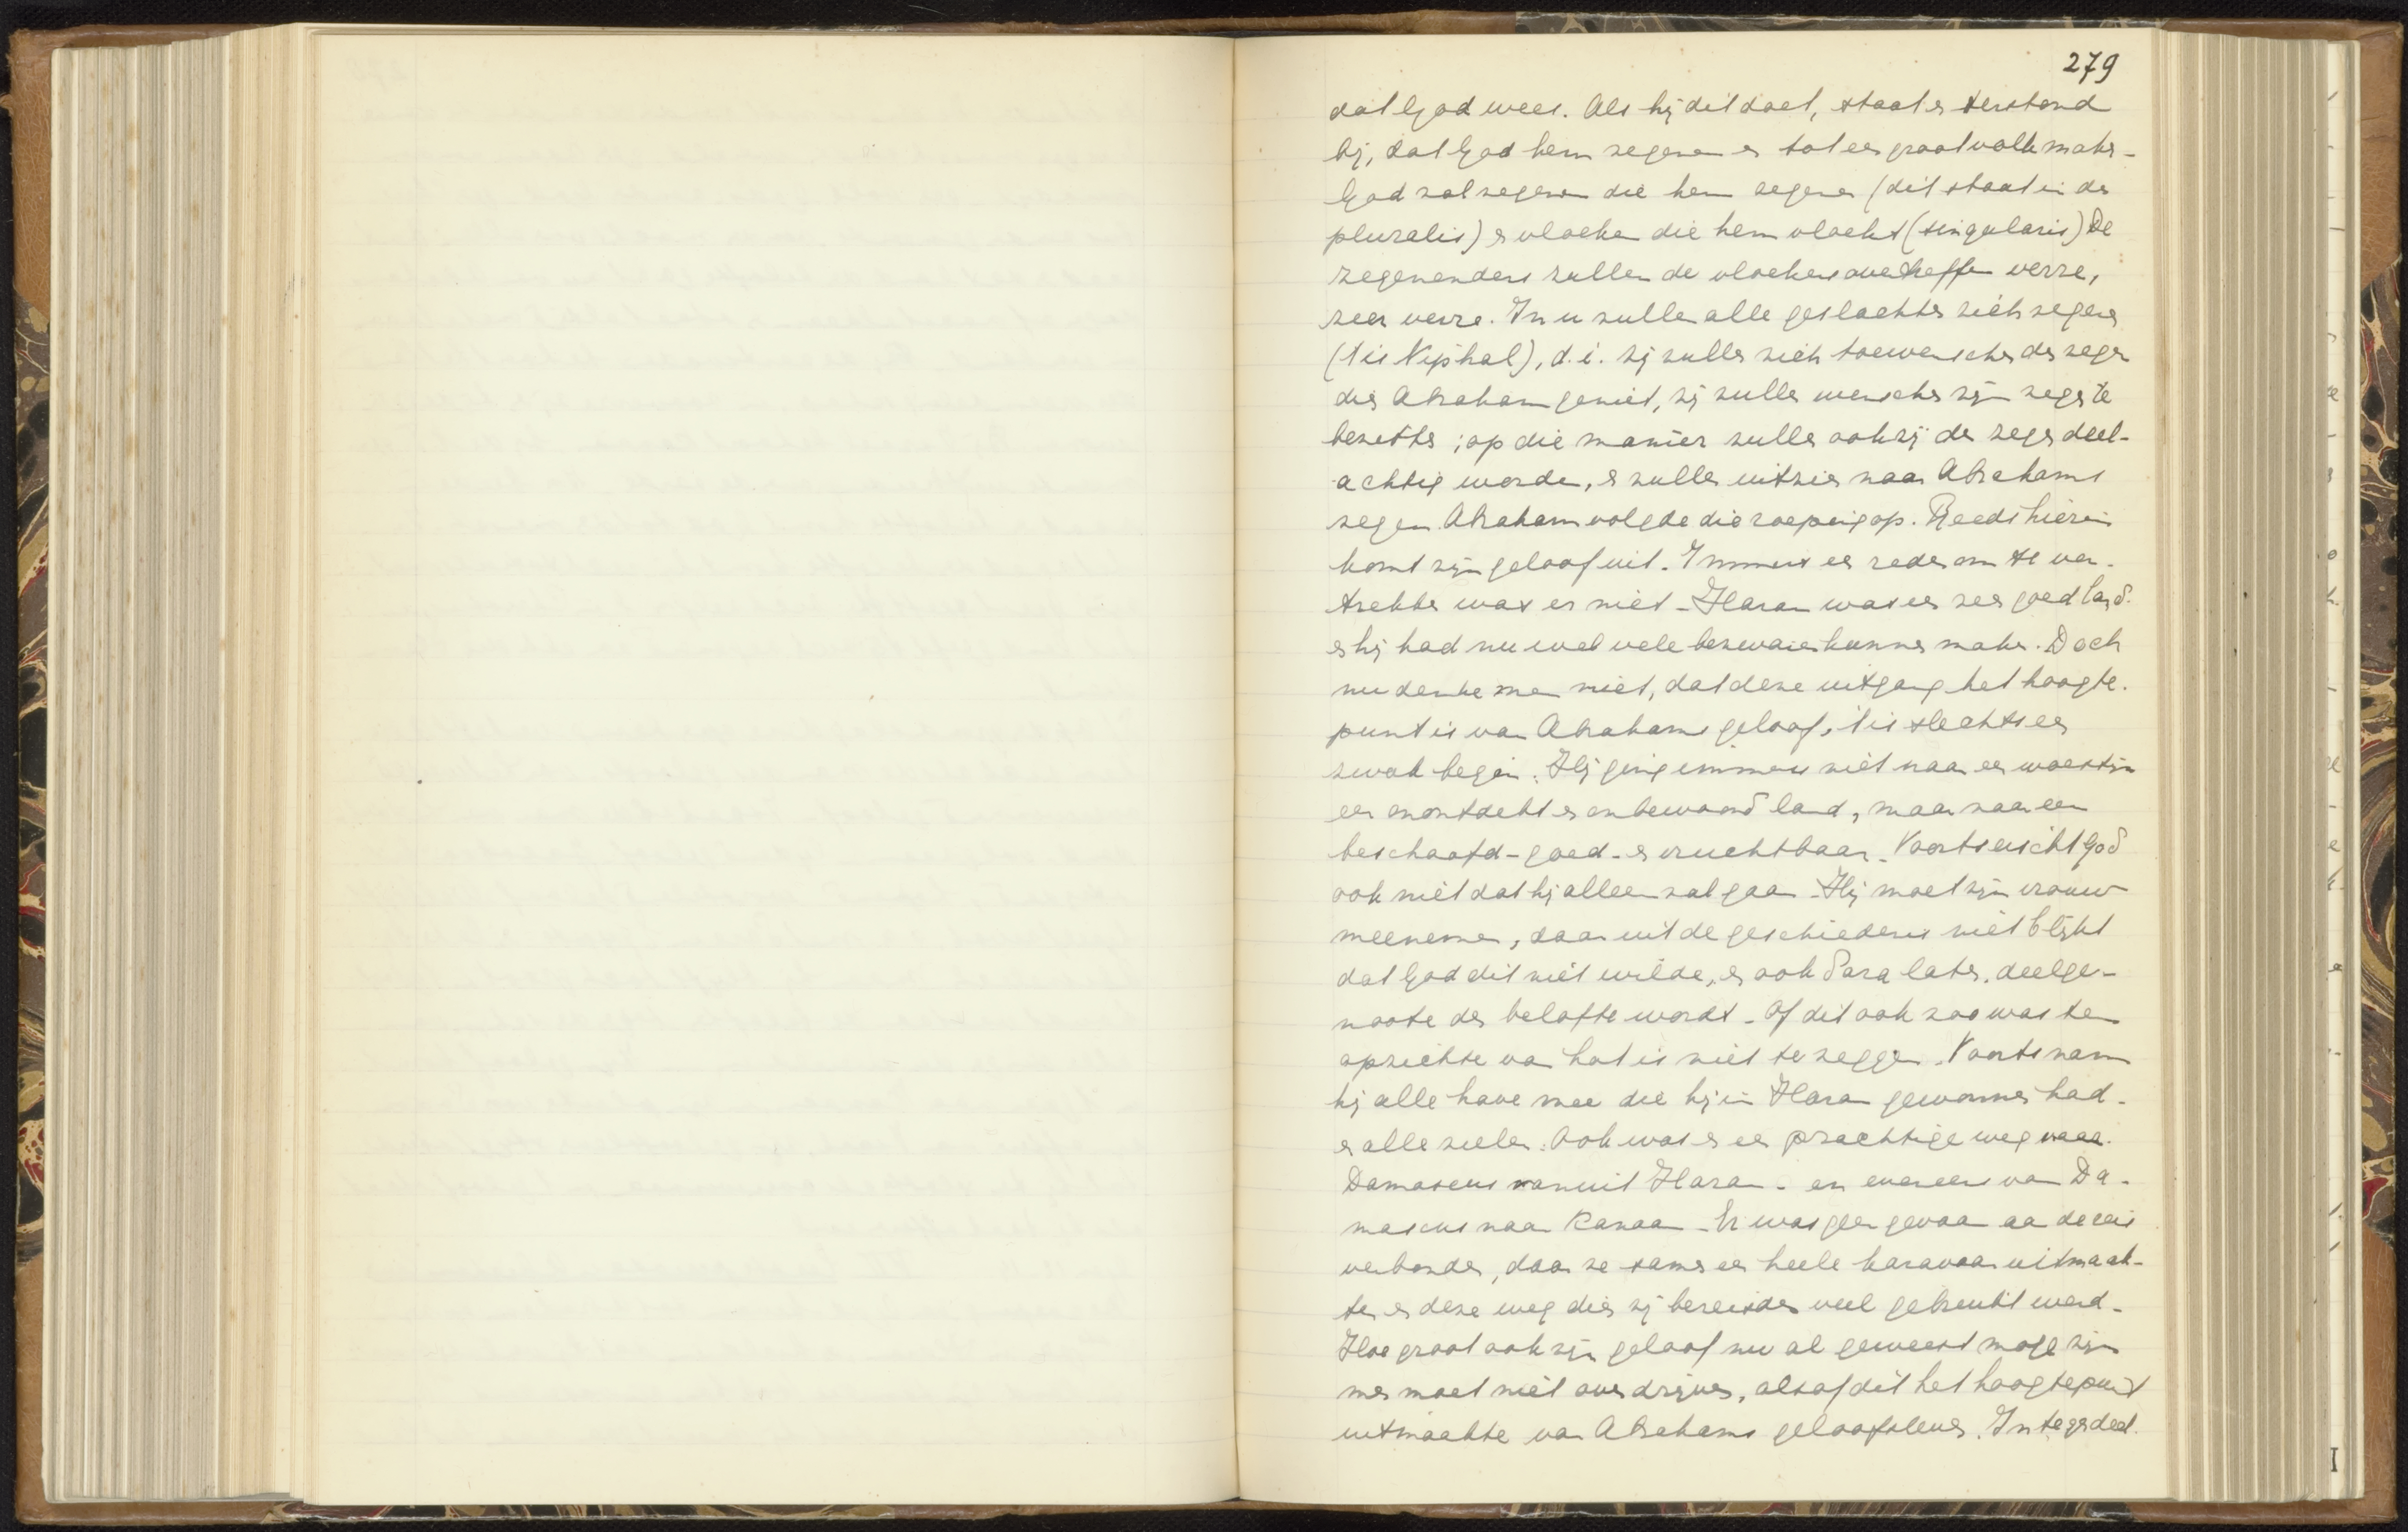 279
dat God wees. Als hij dit doet, staat er terstond
bij, dat God hem zegenen en tot een groot volk maken -
God zal zegenen die hem zegenen (dit staat in den
pluralis) en vloeken die hem vloekt (singularis) De
zegenenden zullen de vloekers overtreffen verre,
zeer verre. In u zullen alle geslachten zich zegenen
('t is Niphal), d.i. zij zullen zich toewenschen den zegen
dien Abraham geniet, zij zullen wenschen zijn zegen te
bezitten; op die manier zullen ook zij den zegen deel-
achtig worden, en zullen uitzien naar Abrahams
zegen. Abraham volgde die roeping op. Reeds hierin
komt zijn geloof uit. Immers een reden om te ver-
trekken was er niet - Haran was een zeer goed land.
en hij had nu wel vele bezwaren kunnen maken. Doch
nu denke men niet, dat deze uitgang het hoogte-
punt is van Abrahams geloof, 't is slechts een
zwak begin. Hij ging immers niet naar een woestijn
een onontdekt en onbewoond land, maar naar een
beschaafd - goed - en vruchtbaar. Voorts eischt God
ook niet dat hij alleen zal gaan - Hij moet zijn vrouw
meenemen, daar uit de geschiedenis niet blijkt
dat God dit niet wilde, en ook Sara later deelge-
noote der belofte wordt - Of dit ook zoo was ten
opzichte van Lot is niet te zeggen. Voorts nam
hij alle have mee die hij in Haran gewonnen had -
en alle zielen. Ook was er een prachtige weg naar
Damascus vanuit Haran - en eveneens van Da-
mascus naar Kanaan - Er was geen gevaar aan de reis
verbonden, daar ze samen een heele karavaan uitmaak-
ten en deze weg dien zij bereisden veel gebruikt werd -
Hoe groot ook zijn geloof nu al geweest moge zijn
men moet niet overdrijven, alsof dit het hoogtepunt
uitmaakte van Abrahams geloofsleven. Integendeel.